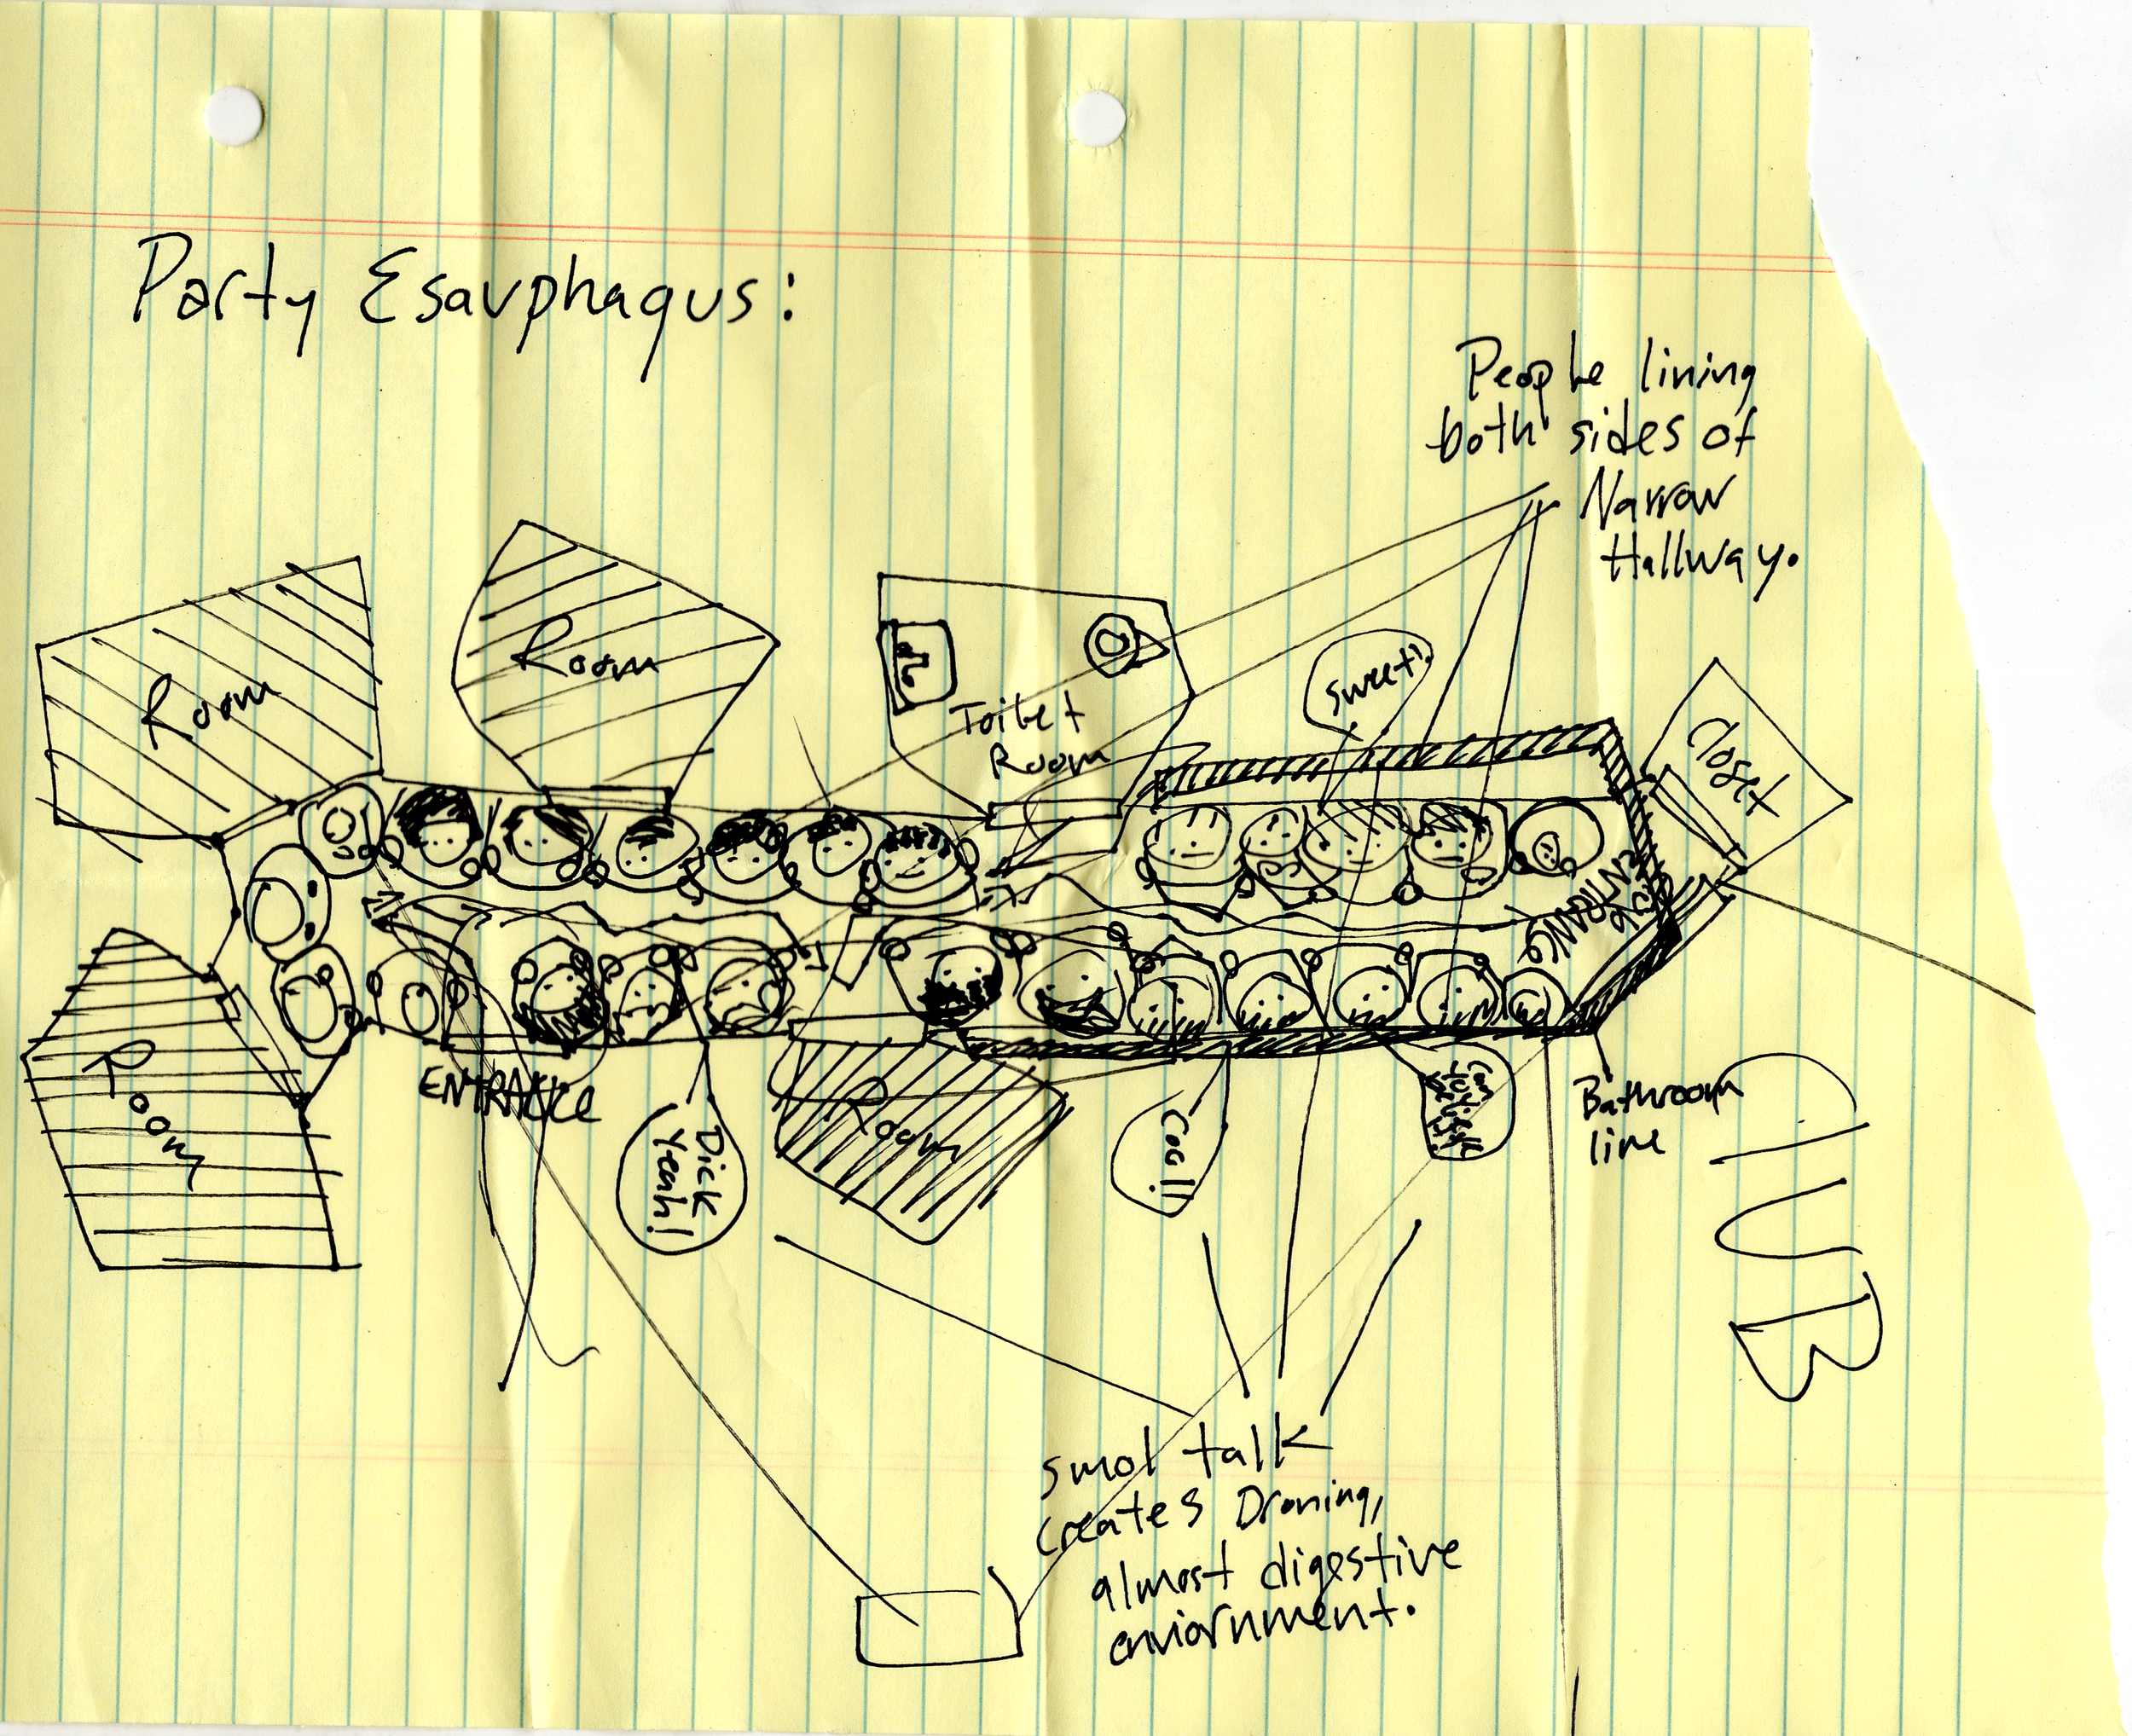 Party Esauphagus:
People lining
both sides of
Narrow
Hallway.
Room
Room
Toilet
Room
Sweet!
Closet
Room
ENTRANCE
Dick
Yeah!
Room
Cool!
Bathroom
line
CLUB
smol talk
creates Droning,
almost digestive
enviornment.